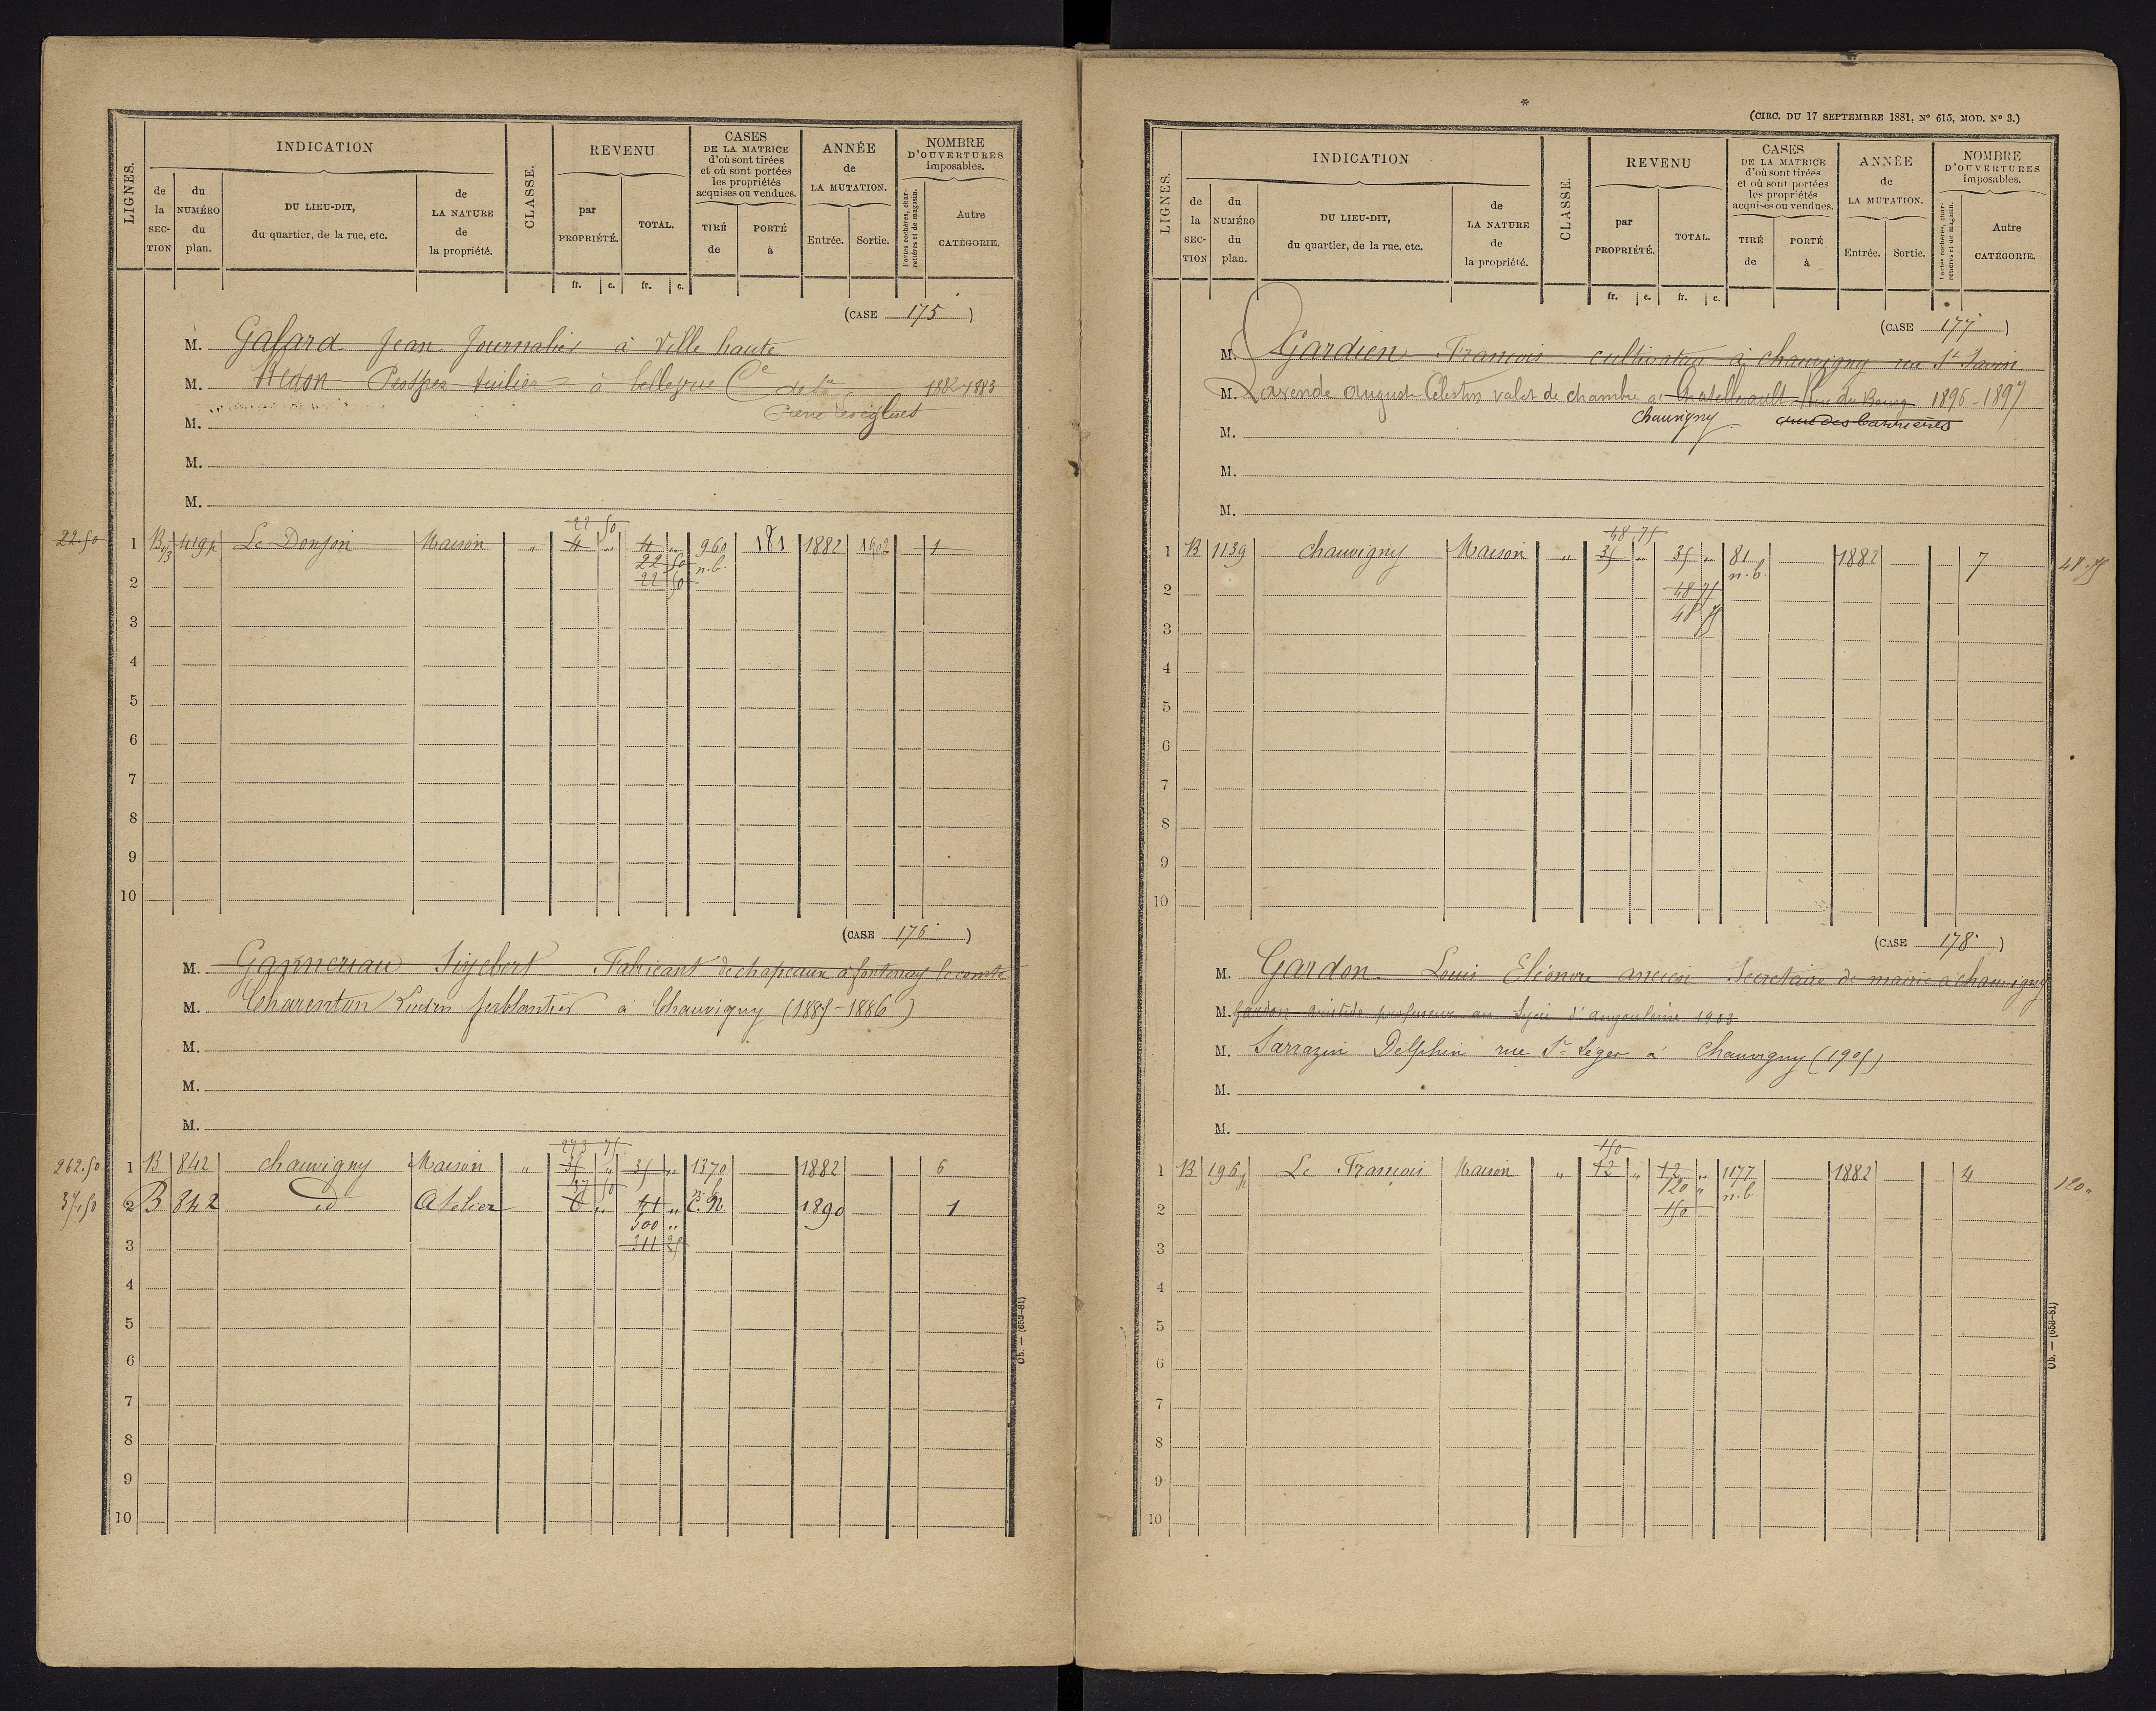 LIGNES.
INDICATION
de la SECTION
du NUMÉRO du plan.
DU LIEU-DIT, du quartier, de la rue, etc.
de LA NATURE de la propriété.
CLASSE.
REVENU
par PROPRIÉTÉ.
TOTAL.
fr. c. fr. c.
CASES DE LA MATRICE d'où sont tirées et où sont portées les propriétés acquises ou vendues.
TIRÉ de
PORTÉ à
ANNÉE de LA MUTATION.
Entrée. Sortie.
NOMBRE D'OUVERTURES imposables.
Portes cochères, charretières et de magasin.
Autre CATÉGORIE.
(CASE 175)
M. Gafard Jean Journalier à Ville haute
M. Prosper tuilier à bellevue Ce de St 1882-1883
Pierre les églises
M.
M.
M.
22.50
22 50
1 B 1/3 419p Le Donjon Maison " 4 " 4 " 960 181 1882 1902 1
22 50 n.b.
2 22 50
3
4
5
6
7
8
9
10
(CASE 176)
M. Garneriau Sigebert Fabricant de chapeaux à fontenay le comte
M. Charenton Lucien ferblantier à Chauvigny (1885-1886)
M.
M.
M.
273 75
262.50 1 B 842 chauvigny Maison " 35 " 35 " 1370 1882 6
37 50 n.b.
37,50 2 B 842 do Atelier 6 " 41 " C.N. 1890 1
300 "
3 311 25
4
5
6
7
8
9
10
Ob. — (653-81)
*
(CIRC. DU 17 SEPTEMBRE 1881, No 615, MOD. No 3.)
LIGNES.
INDICATION
de la SECTION
du NUMÉRO du plan.
DU LIEU-DIT, du quartier, de la rue, etc.
de LA NATURE de la propriété.
CLASSE.
REVENU
par PROPRIÉTÉ.
TOTAL.
fr. c. fr. c.
CASES DE LA MATRICE d'où sont tirées et où sont portées les propriétés acquises ou vendues.
TIRÉ de
PORTÉ à
ANNÉE de LA MUTATION.
Entrée. Sortie.
NOMBRE D'OUVERTURES imposables.
Portes cochères, charretières et de magasin.
Autre CATÉGORIE.
(CASE 177)
M. Gardien Francois cultivateur à chauvigny rue St Savin
M. Laxende Auguste Célestin valet de chambre à Chatellerault Rue du Bourg 1896-1897
M. Chauvigny rue des barrières
M.
M.
48.75
1 B 1139 chauvigny Maison " 35 " 35 " 81 1882 7 48.75
n.b.
2 48 75
3 48 75
4
5
6
7
8
9
10
(CASE 178)
M. Gardon Louis Eléonore ancien Secretaire de mairie à chauvigny
M. Gardon aristide professeur au Lycée d'angoulème 1903
M. Sarrazin Delphin rue St Léger à Chauvigny (1905)
M.
M.
150
1 B 196p Le Francois Maison " 12 " 12 " 1177 1882 4 120"
120 " n.b.
2 150
3
4
5
6
7
8
9
10
Ob. — (653-81)